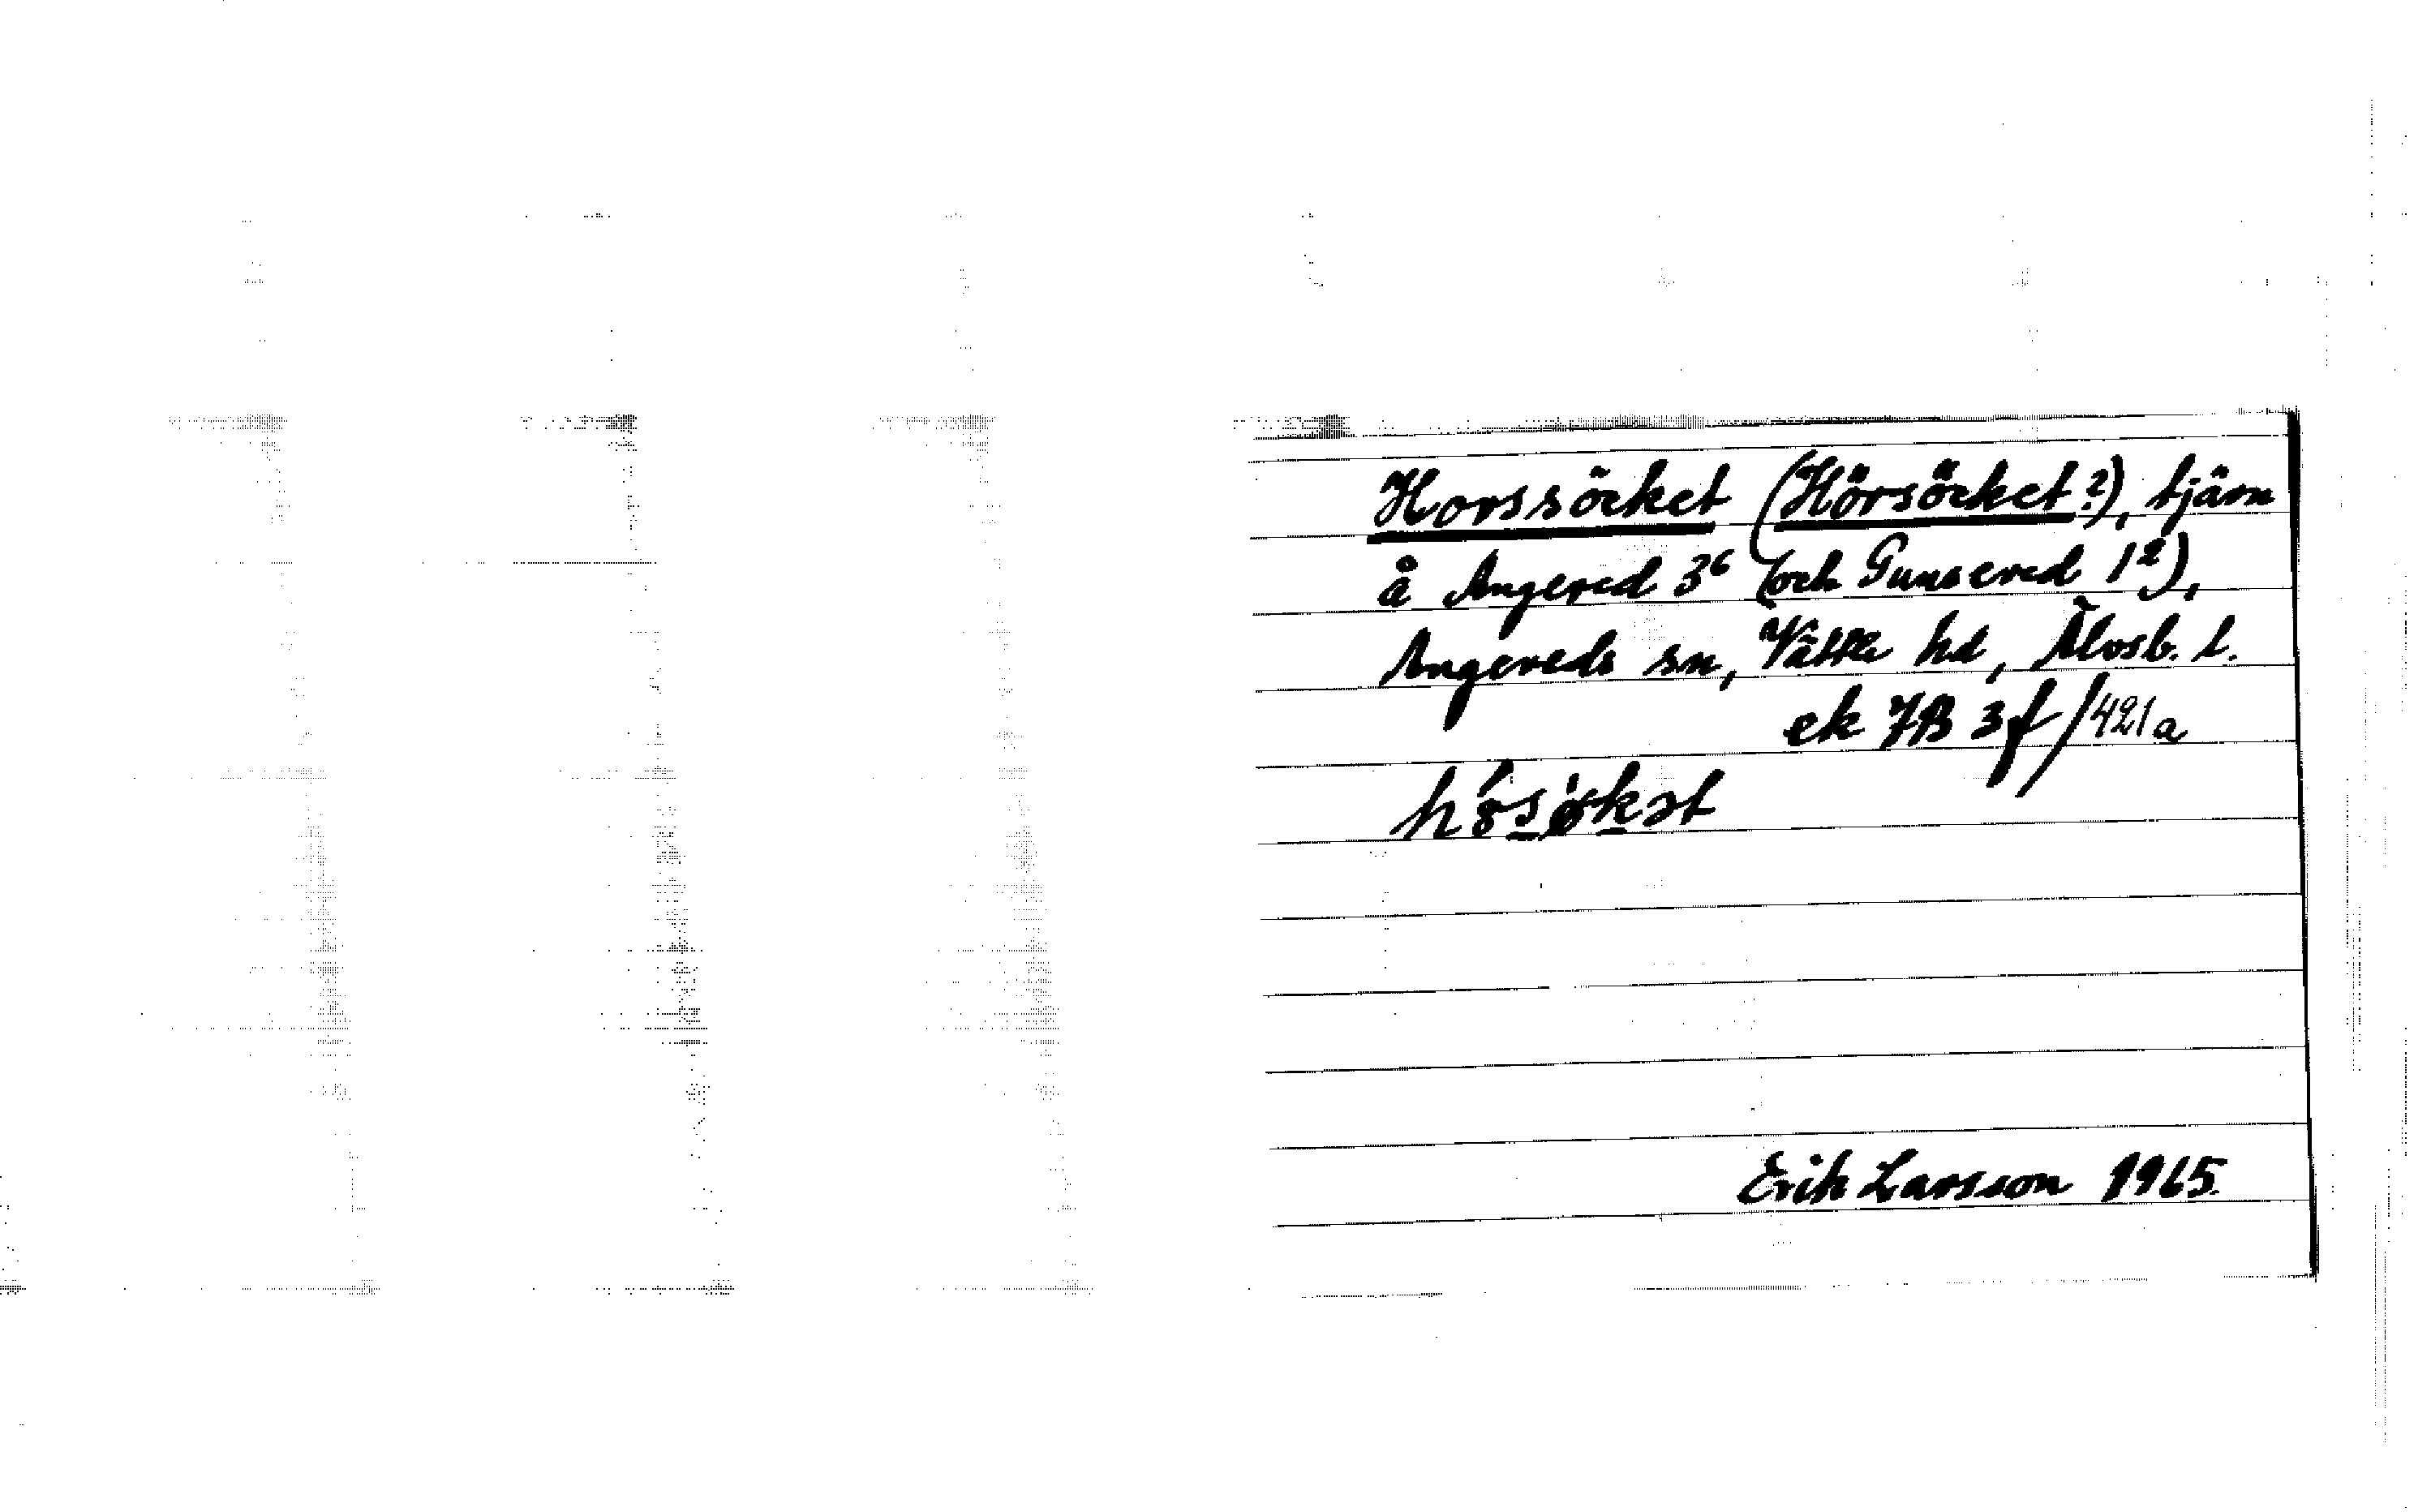 Horssöcket (Hörsöcket?), tjärn
å Angered 3⁶ (och Gunnered 1²),
Angereds sn, Vättle hd, Älvsb. l.
ek 7B 3f/421a
Erik Larsson 1965.